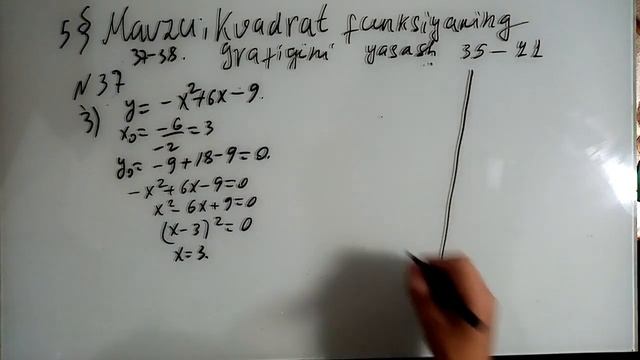 5§ Mavzu: Kvadrat funksiyaning
37-38. grafigini yasash 35-22
N37
3) y = -x²+6x-9.
x₀ = -6/-2 = 3
y₀ = -9+18-9=0.
-x²+6x-9=0
x²-6x+9=0
(x-3)²=0
x=3.